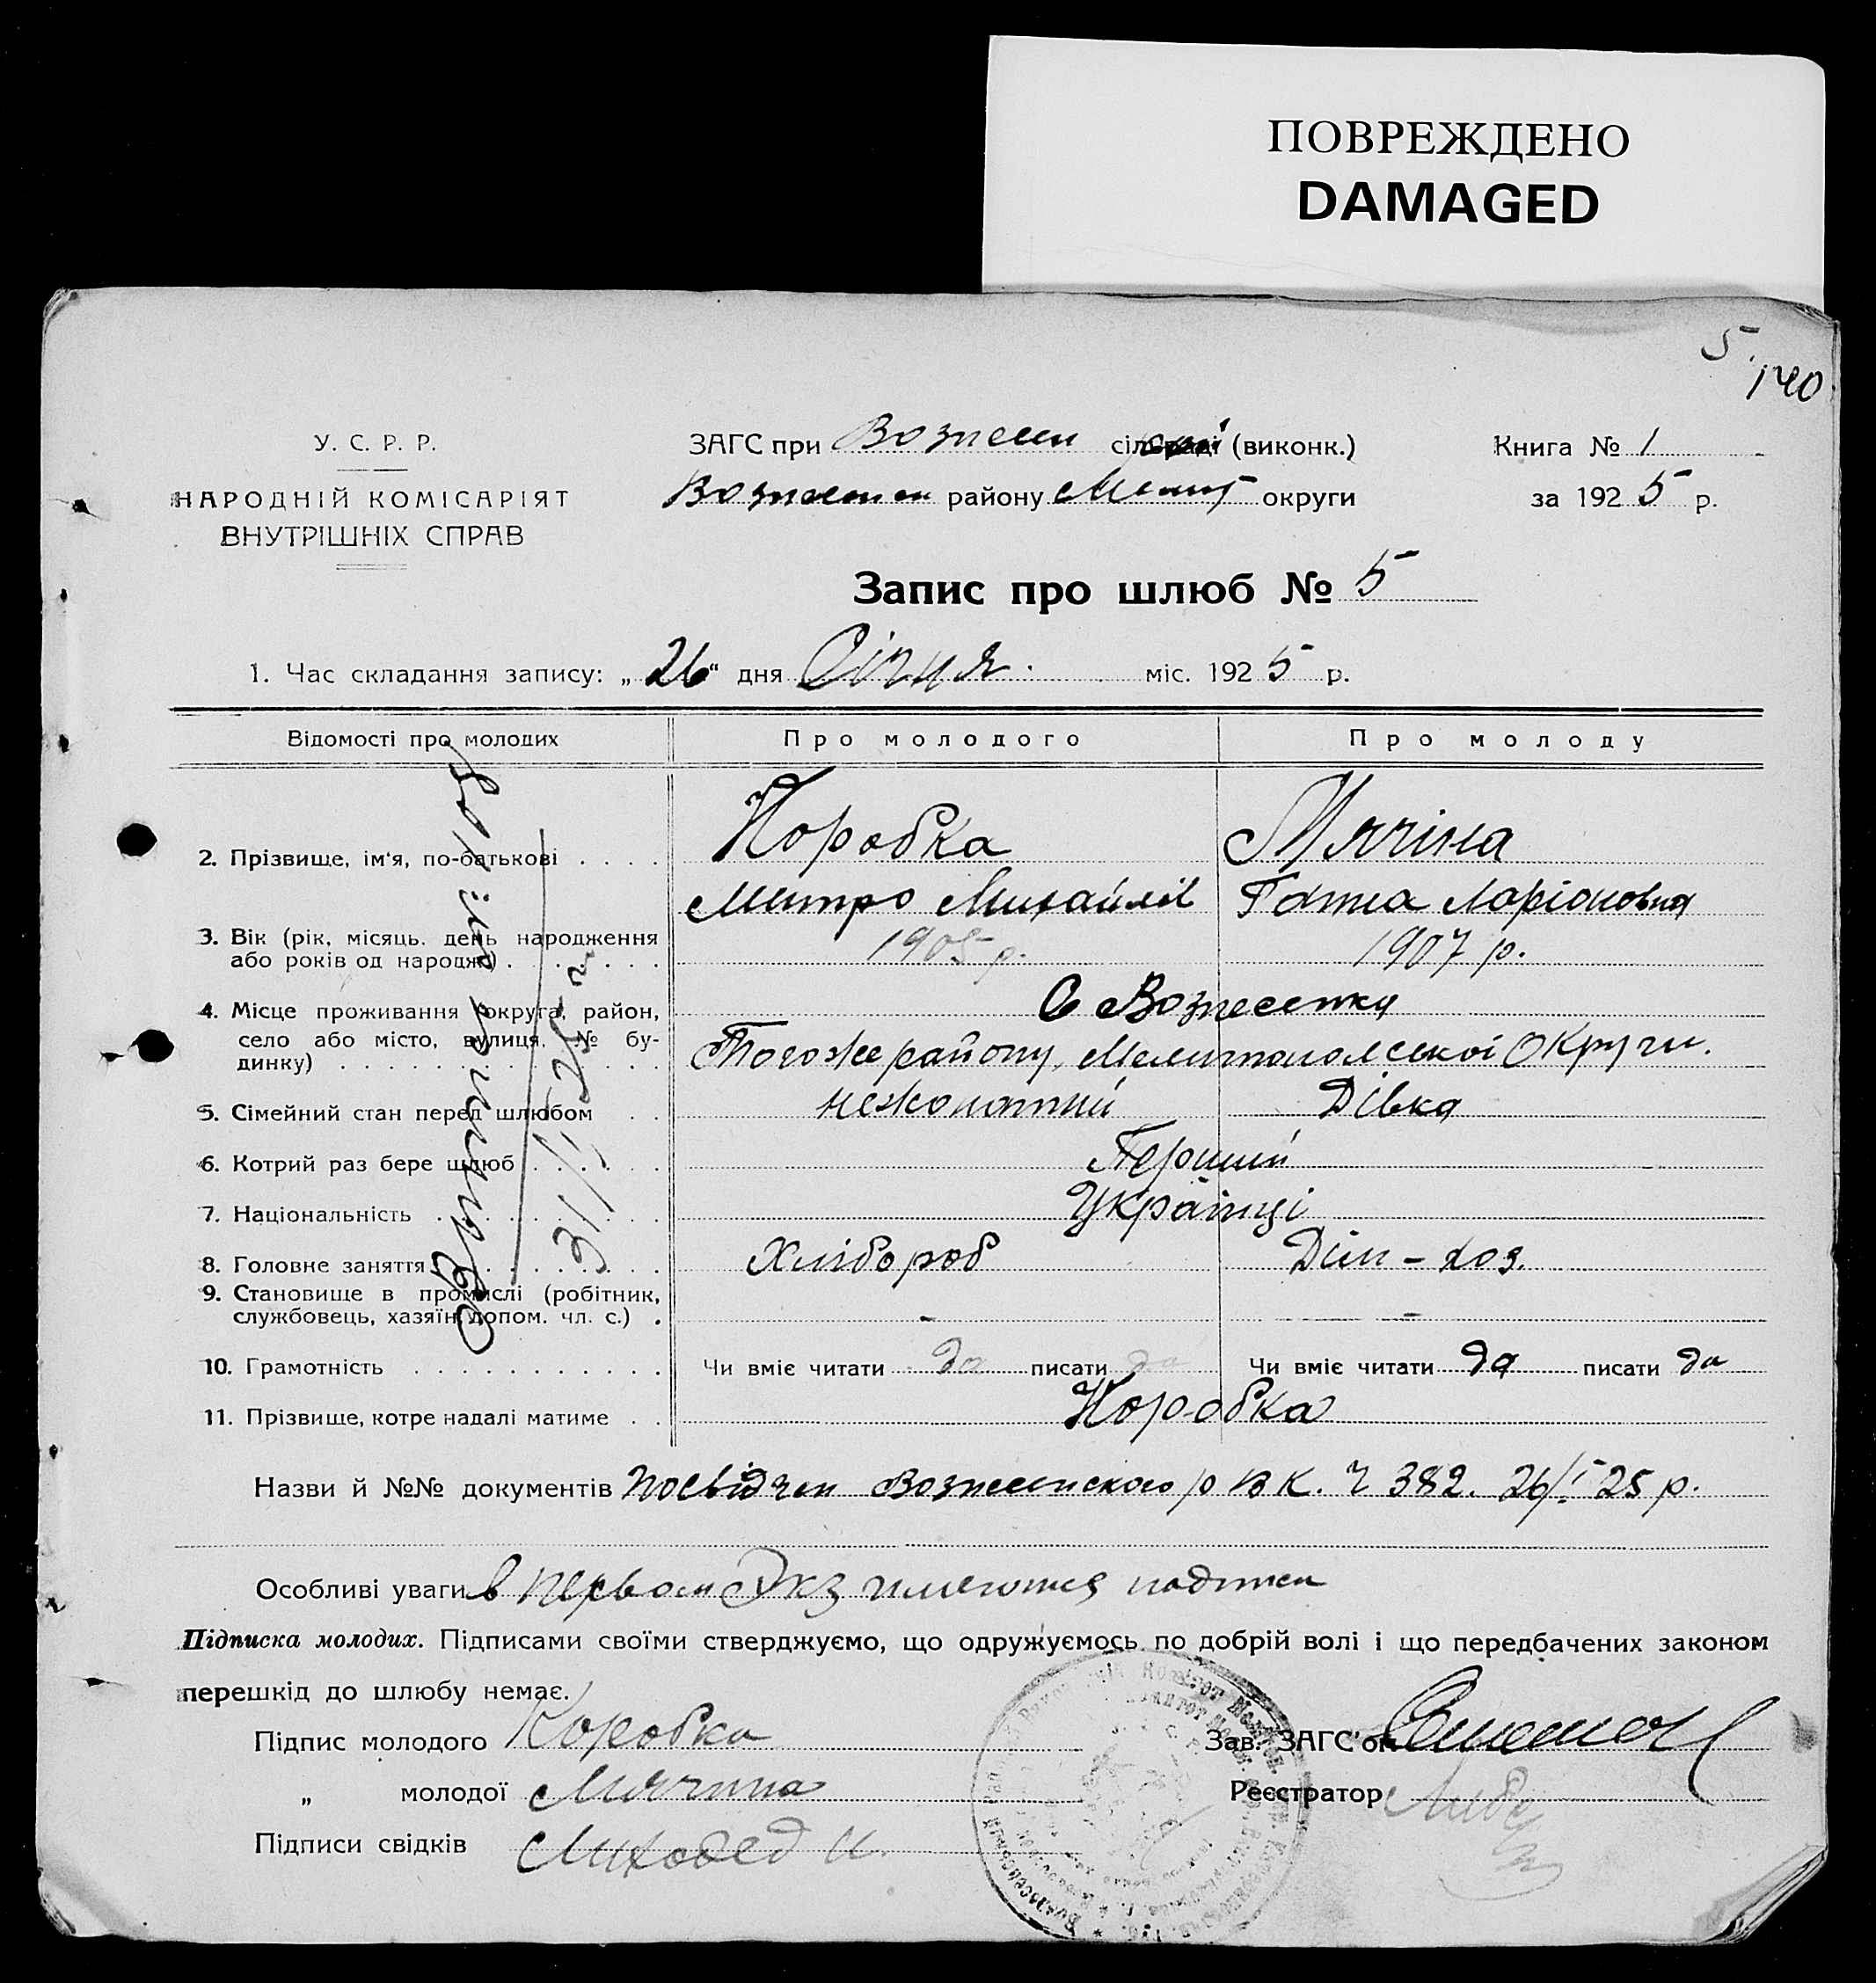 ПОВРЕЖДЕНО
DAMAGED
5
140
У. С. Р. Р.
НАРОДНІЙ КОМІСАРІЯТ
ВНУТРІШНІХ СПРАВ
ЗАГС при Вознесен (виконк.)
Вознесен району Меліт округи
Книга № 1
за 1925 р.
Запис про шлюб № 5
1. Час складання запису: „26“ дня Січня міс. 1925 р.
Відомості про молодих
Про молодого
Про молоду
2. Прізвище, ім'я, по-батькові . . . .
Коробка
Митро Михайлів
Мячіна
Ганна Ларіоновна
3. Вік (рік, місяць. день народження
або років од народж.) . . . . . .
1905 р.
1907 р.
4. Місце проживання (округа, район,
село або місто, вулиця. № бу-
динку) . . . . . . . . . .
С Вознесенка
Тогоже району, Мелитопольської Округи.
5. Сімейний стан перед шлюбом . .
нежонатий
Дівка
6. Котрий раз бере шлюб . . . . . .
Перший
7. Національність . . . . . . . .
Українці
8. Головне заняття . . . . . . . .
Хлібороб
Дом-хоз.
9. Становище в промислі (робітник,
службовець, хазяїн, допом. чл. с.) .
-
-
10. Грамотність . . . . . . . . . . .
Чи вміє читати да писати да
Чи вміє читати да писати да
11. Прізвище, котре надалі матиме . .
Коробка
31/I 25 г.
Назви й №№ документів Посвідчен Вознесенского РВК. Ч 382. 26/I 25 р.
Особливі уваги в первом Экз имеются
Підписка молодих. Підписами своїми стверджуємо, що одружуємось по добрій волі і що передбачених законом
перешкід до шлюбу немає.
Підпис молодого Коробка
„ молодої Мячина
Підписи свідків Лиходед И.
Зав. ЗАГС'ом
Реєстратор